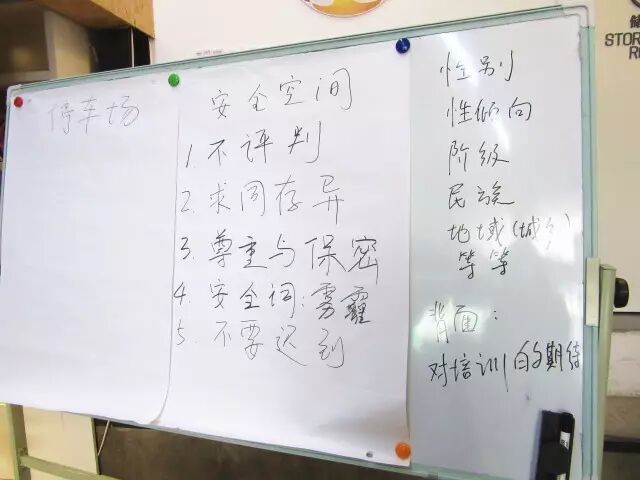 停车场
安全空间
1. 不评判
2. 求同存异
3. 尊重与保密
4. 安全词:雾霾
5. 不要迟到
性别
性倾向
阶级
民族
地域(城乡)
等等
背面:
对培训的期待
STOR